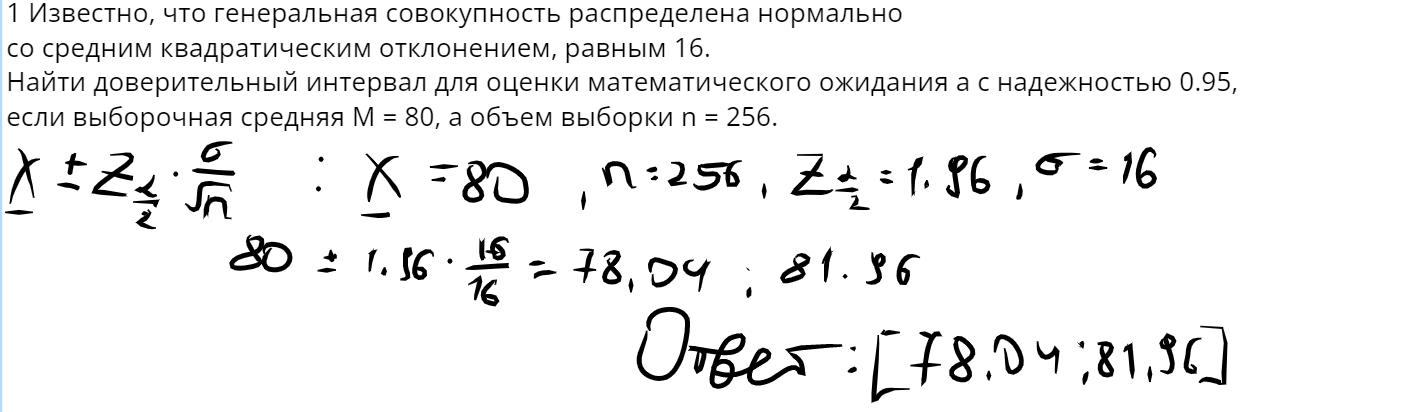 1 Известно, что генеральная совокупность распределена нормально
со средним квадратическим отклонением, равным 16.
Найти доверительный интервал для оценки математического ожидания a с надежностью 0.95,
если выборочная средняя M = 80, а объем выборки n = 256.
X ± Z α/2 · σ/√n : X = 80 , n = 256 , Z α/2 = 1.96 , σ = 16
80 ± 1.96 · 16/16 = 78,04 ; 81.96
Ответ: [78.04 ; 81,96]